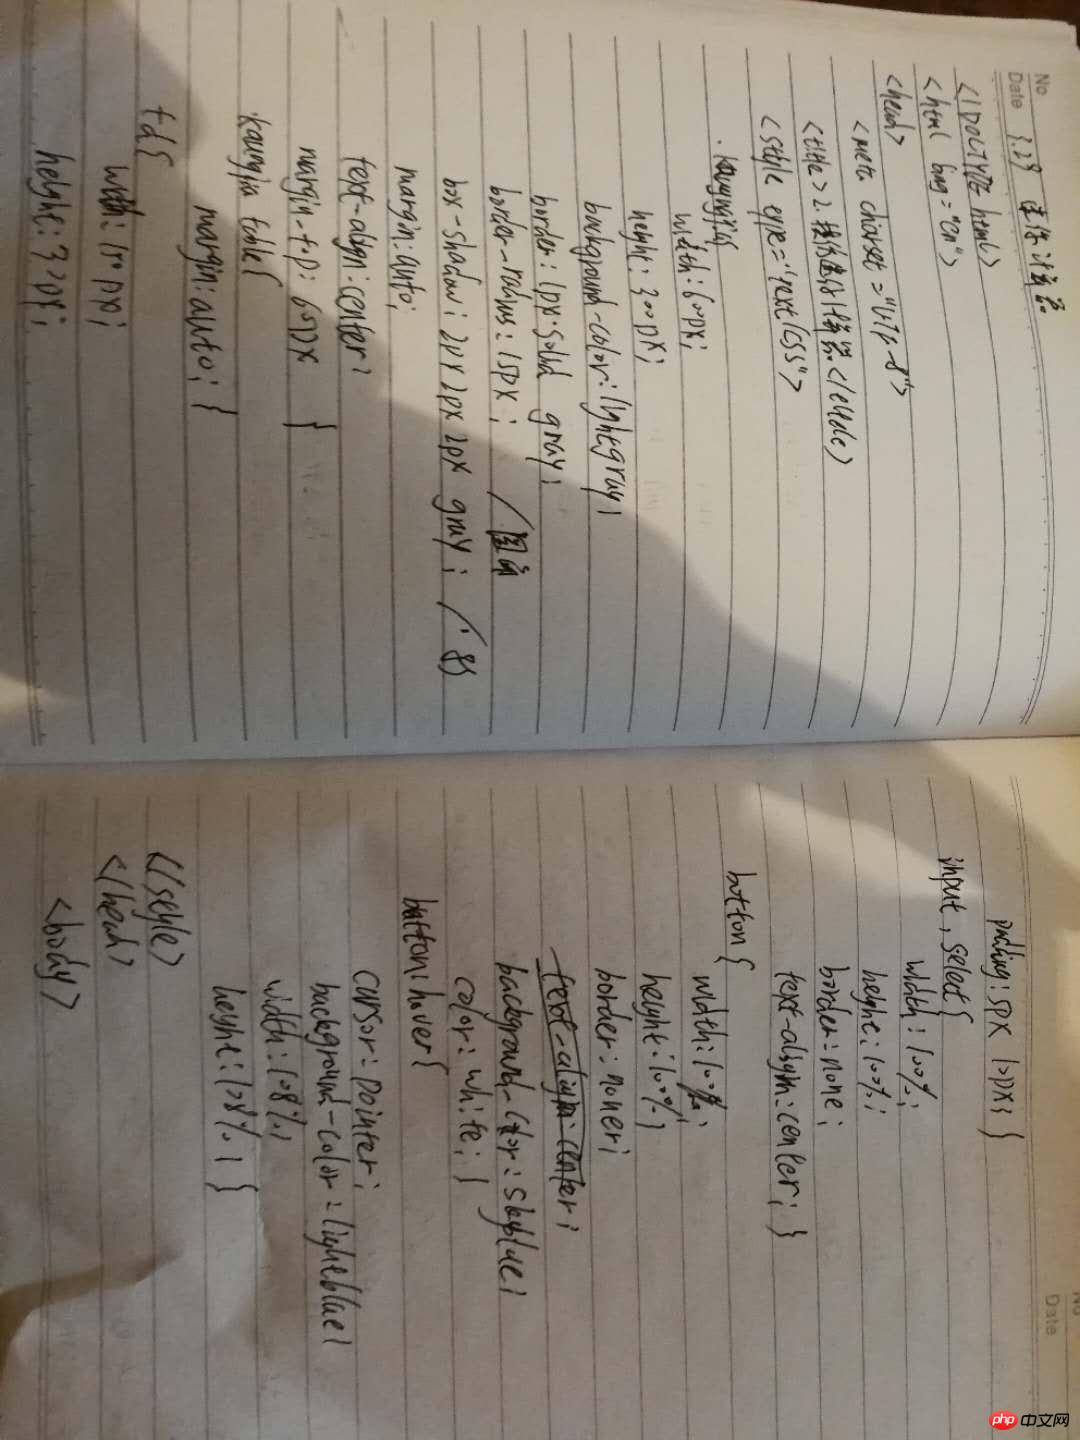 No
Date 3.29 迷你计算器
<!DOCTYPE html>
<html lang="en">
<head>
<meta charset="UTF-8">
<title>2.迷你计算器</title>
<style type="text/css">
width:600px;
height:300px;
background-color:lightgray;
border:1px solid gray;
border-radius:15px; /圆角
box-shadow:2px 2px 2px gray; /
margin:auto;
text-align:center;
margin-top:60px }
.kuangjia table{
margin:auto; }
td{
width:150px;
height:32px;
padding:5px 10px; }
input, select{
width:100%;
height:100%;
border:none;
text-align:center; }
button{
width:100%;
height:100%;
border:none;
text-align:center;
background-color:skyblue;
color:white; }
button:hover{
cursor:pointer;
background-color:lightblue;
width:108%;
height:108%; }
</style>
</head>
<body>
No
Date
php 中文网